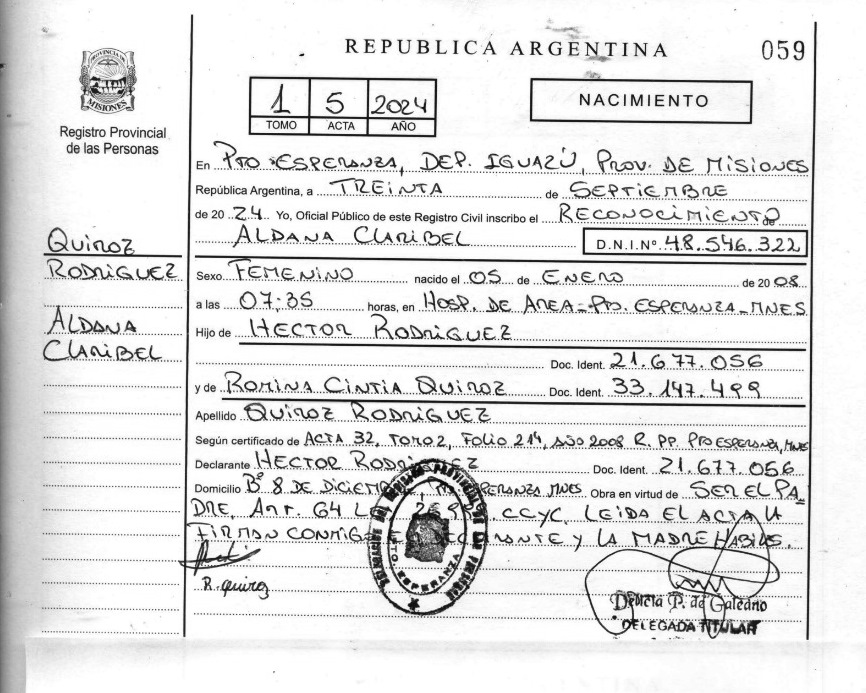 REPUBLICA ARGENTINA
059
PROVINCIA DE
MISIONES
Registro Provincial
de las Personas
1 5 2024
TOMO ACTA AÑO
NACIMIENTO
En PTO ESPERANZA, DEP. IGUAZÚ, PROV. DE MISIONES
República Argentina, a TREINTA de SEPTIEMBRE
de 20 24 Yo, Oficial Público de este Registro Civil inscribo el RECONOCIMIENTO de
ALDANA CLARIBEL D.N.I.Nº 48.546.322
QUIROZ
RODRIGUEZ
ALDANA
CLARIBEL
Sexo FEMENINO nacido el 05 de ENERO de 20 08
a las 07:35 horas, en HOSP. DE AREA-PTO. ESPERANZA-MNES
Hijo de HECTOR RODRIGUEZ
Doc. Ident. 21.677.056
y de ROMINA CINTIA QUIROZ Doc. Ident. 33.147.499
Apellido QUIROZ RODRIGUEZ
Según certificado de ACTA 32, TOMO 2, FOLIO 214, AÑO 2008 R. PP. PTO ESPERANZA, MNES
Declarante HECTOR RODRIGUEZ Doc. Ident. 21.677.056
Domicilio Bº 8 DE DICIEMBRE ESPERANZA MNES Obra en virtud de SER EL PA-
DRE, ART. 64 CCYC. LEIDA EL ACTA LA
FIRMAN CONMIGO EL DECLARANTE Y LA MADRE HABILES.
R. Quiroz
PTO. ESPERANZA
P. de Galeano
DELEGADA TITULAR